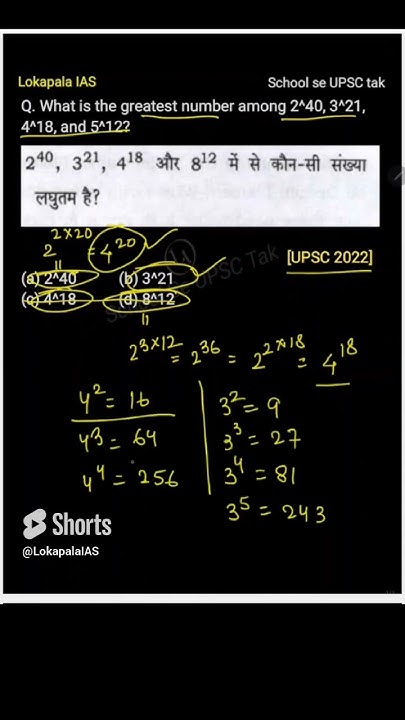 Lokapala IAS
School se UPSC tak
Q. What is the greatest number among 2^40, 3^21,
4^18, and 5^12?
2⁴⁰, 3²¹, 4¹⁸ और 8¹² में से कौन-सी संख्या
लघुतम है?
2²ˣ²⁰ = 4²⁰
[UPSC 2022]
(a) 2^40 (b) 3^21
(c) 4^18 (d) 8^12
2³ˣ¹² = 2³⁶ = 2²ˣ¹⁸ = 4¹⁸
4² = 16
3² = 9
4³ = 64
3³ = 27
4⁴ = 256
3⁴ = 81
3⁵ = 243
Shorts
@LokapalaIAS